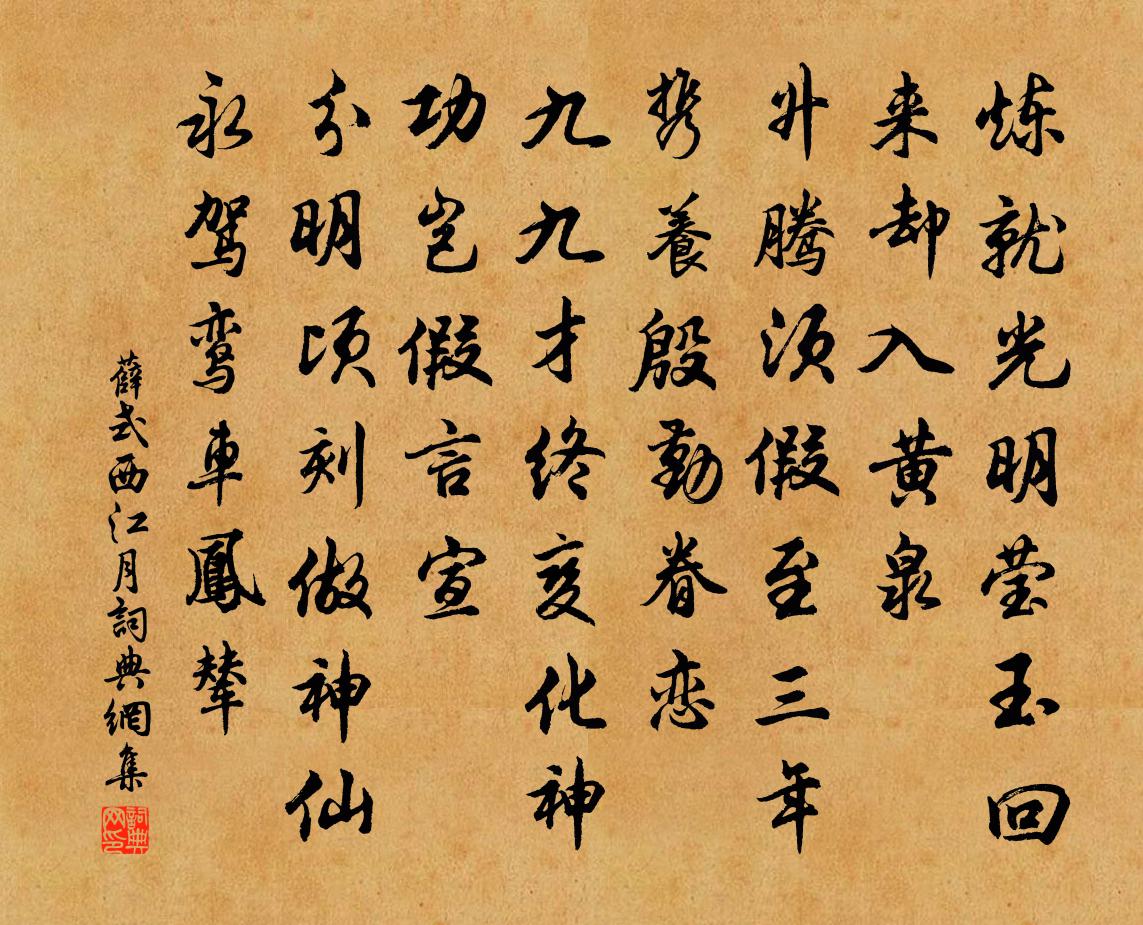 炼就光明莹玉回
来却入黄泉
升腾须假至三年
携養殷勤眷恋
九九才终变化神
功岂假言宣
分明顷刻做神仙
永驾鸾車鳳辇
薛式西江月詞典網集
詞典网印